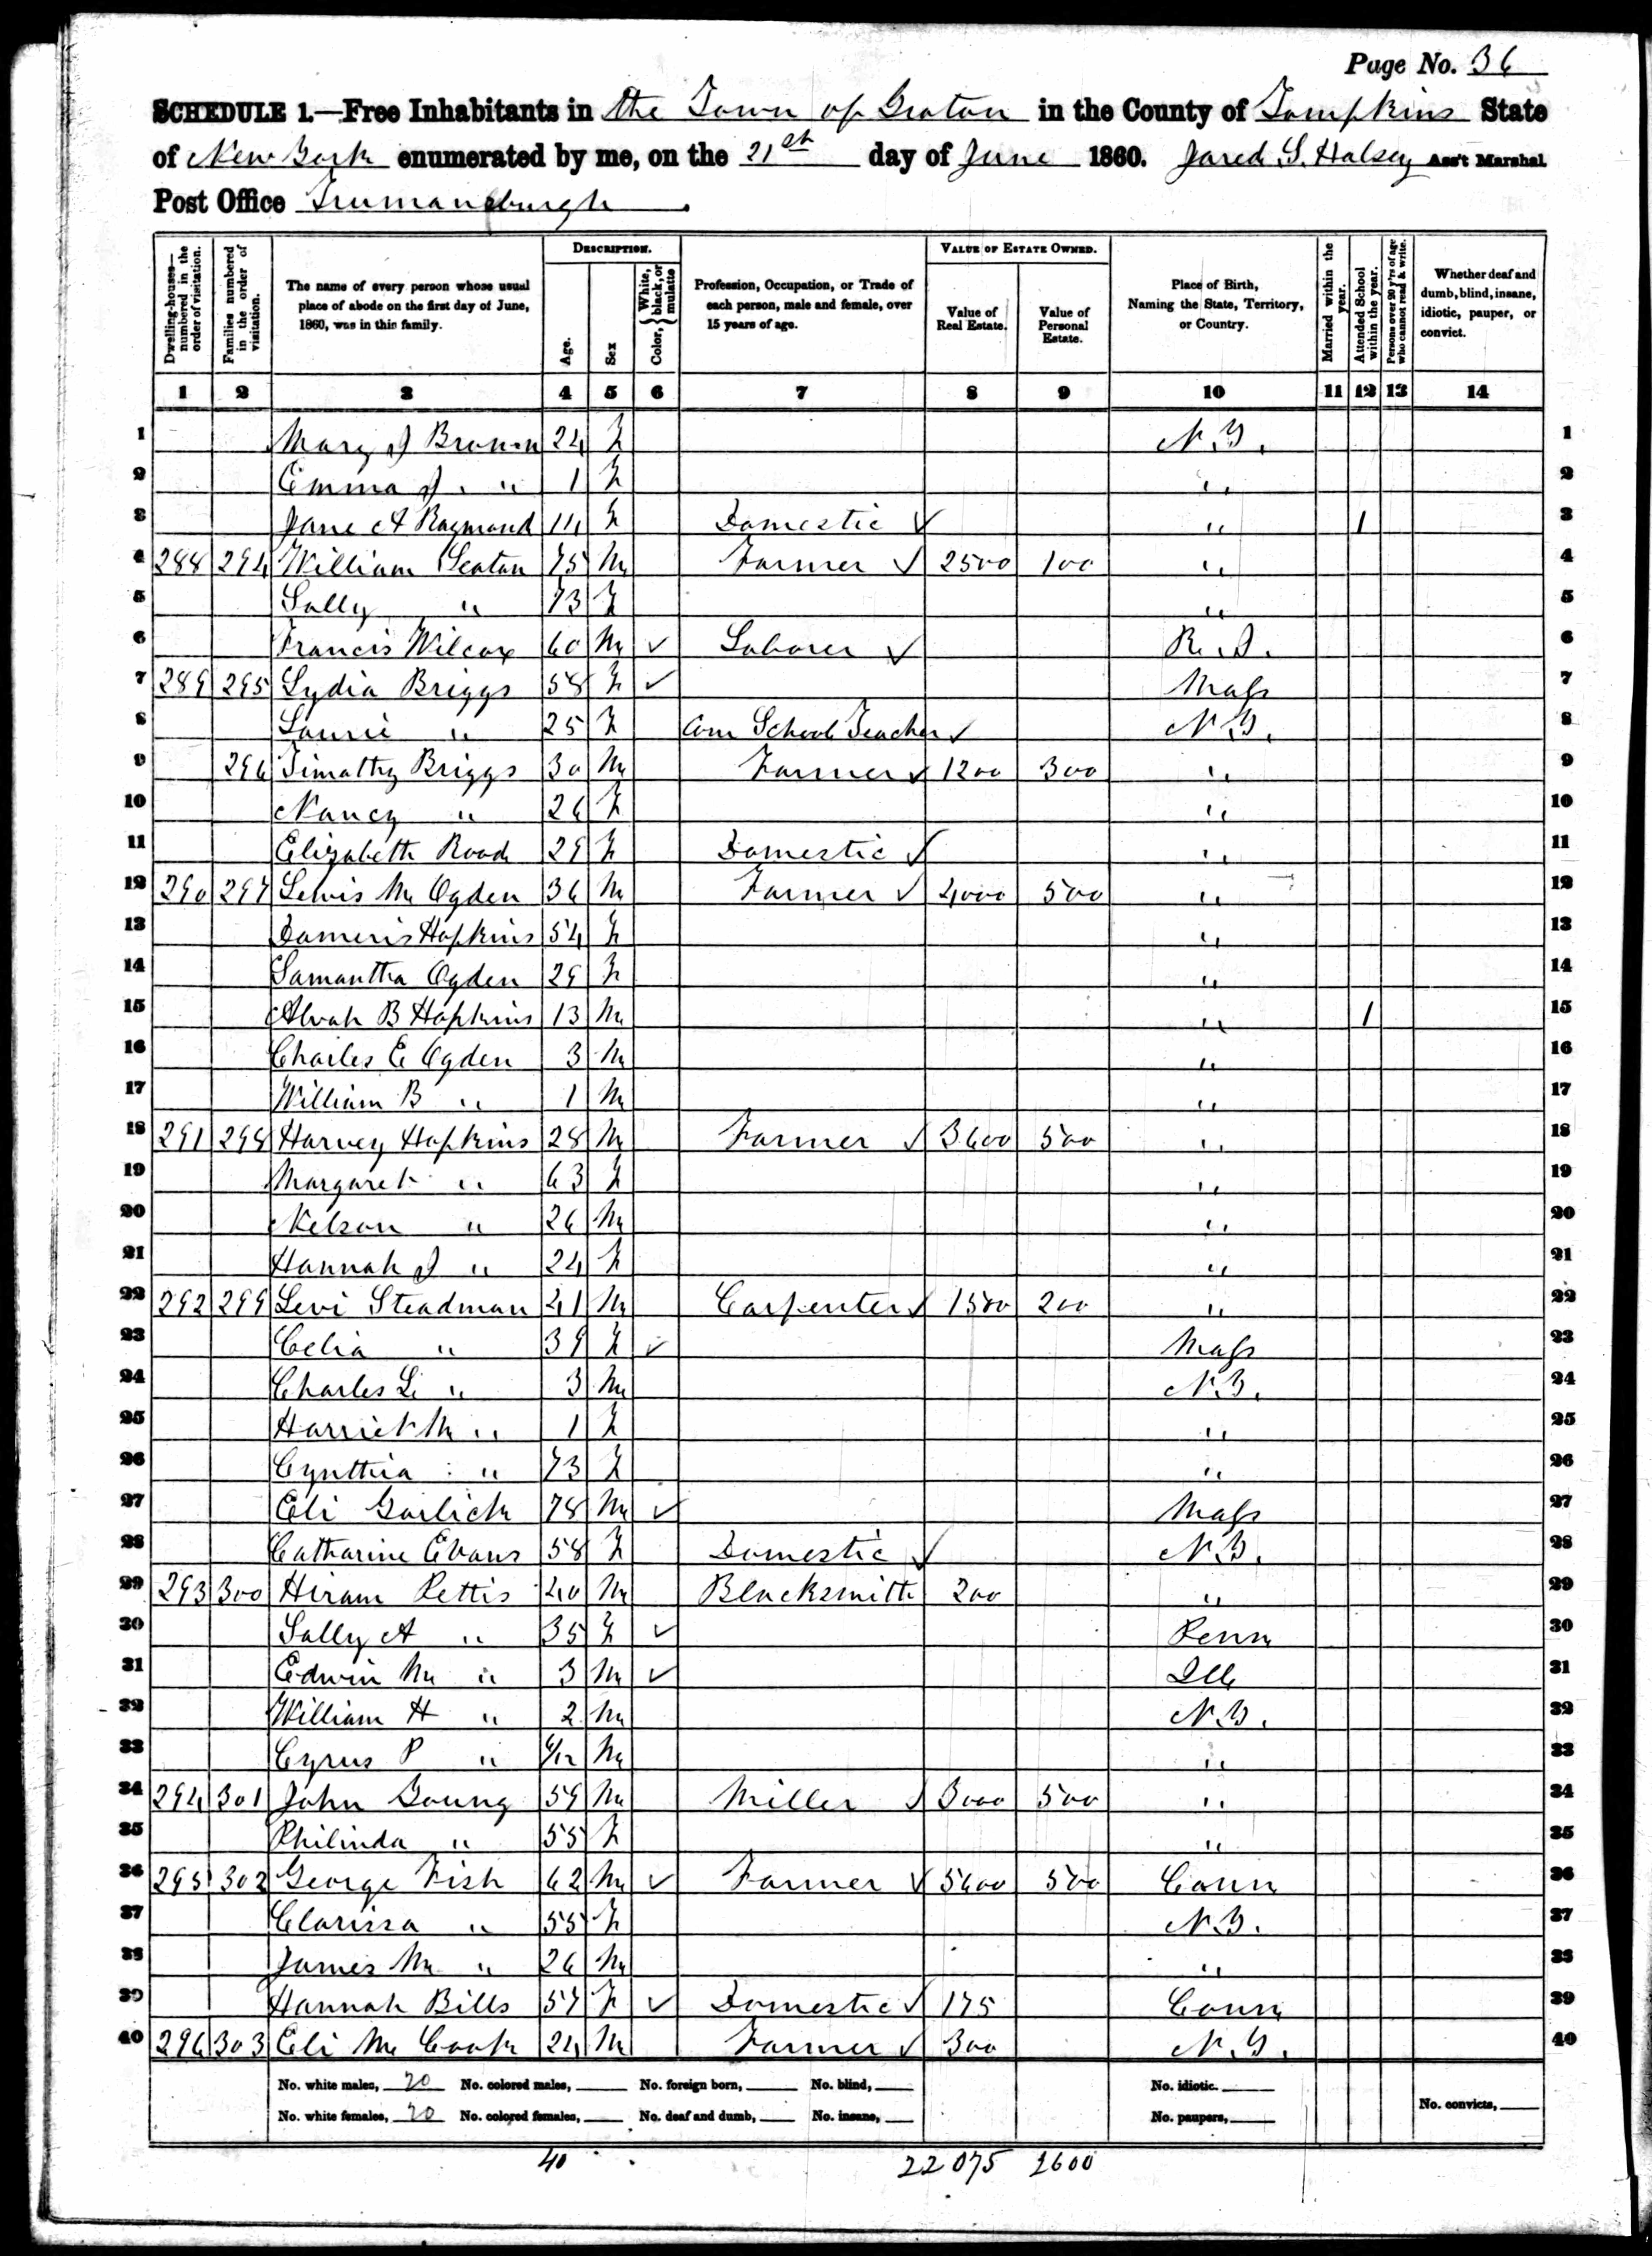 Page No. 36
SCHEDULE 1.—Free Inhabitants in the Town of Groton in the County of Tompkins State
of New York enumerated by me, on the 21st day of June 1860. Jared S. Halsey Ass't Marshal
Post Office Trumansburgh.
Dwelling-houses—numbered in the order of visitation. Families numbered in the order of visitation. The name of every person whose usual place of abode on the first day of June, 1860, was in this family. DESCRIPTION. Age. Sex Color, { White, black, or mulatto Profession, Occupation, or Trade of each person, male and female, over 15 years of age. VALUE OF ESTATE OWNED. Value of Real Estate. Value of Personal Estate. Place of Birth, Naming the State, Territory, or Country. Married within the year. Attended School within the year. Persons over 20 y'rs of age who cannot read & write. Whether deaf and dumb, blind, insane, idiotic, pauper, or convict.
1 2 3 4 5 6 7 8 9 10 11 12 13 14
1 Mary J Brown 24 F N.Y. 1
2 Emma J. " 1 F " 2
3 Jane A Raymond 14 F Domestic ✓ " 1 3
4 288 294 William Seaton 75 M Farmer ✓ 2500 100 " 4
5 Sally " 73 F " 5
6 Francis Wilcox 60 M ✓ Laborer ✓ R.I. 6
7 289 295 Lydia Briggs 58 F ✓ Mass 7
8 " 25 F Com School Teacher ✓ N.Y. 8
9 296 Timothy Briggs 30 M Farmer ✓ 1200 300 " 9
10 Nancy " 26 F " 10
11 Elizabeth Rood 29 F Domestic ✓ " 11
12 290 297 Lewis M Ogden 36 M Farmer ✓ 4000 500 " 12
13 Dameris Hopkins 54 F " 13
14 Samantha Ogden 29 F " 14
15 Alvah B Hopkins 13 M " 1 15
16 Charles E Ogden 3 M " 16
17 William B " 1 M " 17
18 291 298 Harvey Hopkins 28 M Farmer ✓ 3600 500 " 18
19 Margaret " 63 F " 19
20 Nelson " 26 M " 20
21 Hannah J " 24 F " 21
22 292 299 Levi Steadman 41 M Carpenter ✓ 1500 200 " 22
23 Celia " 39 F ✓ Mass 23
24 Charles L. " 3 M N.Y. 24
25 Harriet M " 1 F " 25
26 Cynthia " 73 F " 26
27 Eli Garlick 78 M ✓ Mass 27
28 Catharine Evans 58 F Domestic ✓ N.Y. 28
29 293 300 Hiram Pettis 40 M Blacksmith 200 " 29
30 Sally A " 35 F ✓ Penn 30
31 Edwin M " 3 M ✓ Ill 31
32 William H " 2 M N.Y. 32
33 Cyrus P " 6/12 M " 33
34 294 301 John Young 59 M Miller ✓ 3000 500 " 34
35 Philinda " 55 F " 35
36 295 302 George Fish 62 M ✓ Farmer ✓ 5600 500 Conn 36
37 Clarissa " 55 F N.Y. 37
38 James M " 26 M " 38
39 Hannah Bills 57 F ✓ Domestic ✓ 175 Conn 39
40 296 303 Eli M Cook 24 M Farmer ✓ 300 N.Y. 40
No. white males, 20 No. colored males, No. foreign born, No. blind, No. idiotic.
No. white females, 20 No. colored females, No. deaf and dumb, No. insane, No. paupers, No. convicts,
40 22075 2600